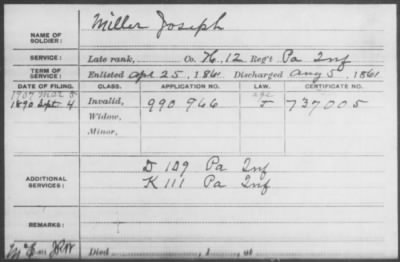 Miller Joseph
NAME OF SOLDIER:
SERVICE: Late rank, Co. H, 12 Reg't Pa Inf
TERM OF SERVICE: Enlisted Apl 25, 1861 Discharged Aug 5, 1861
DATE OF FILING. CLASS. APPLICATION NO. LAW. CERTIFICATE NO.
1907 Mar
1890 Sept 4 Invalid, 990 966 J 737005
Widow,
Minor,
D 109 Pa Inf
ADDITIONAL SERVICES: K 111 Pa Inf
REMARKS:
Died , 1 , at